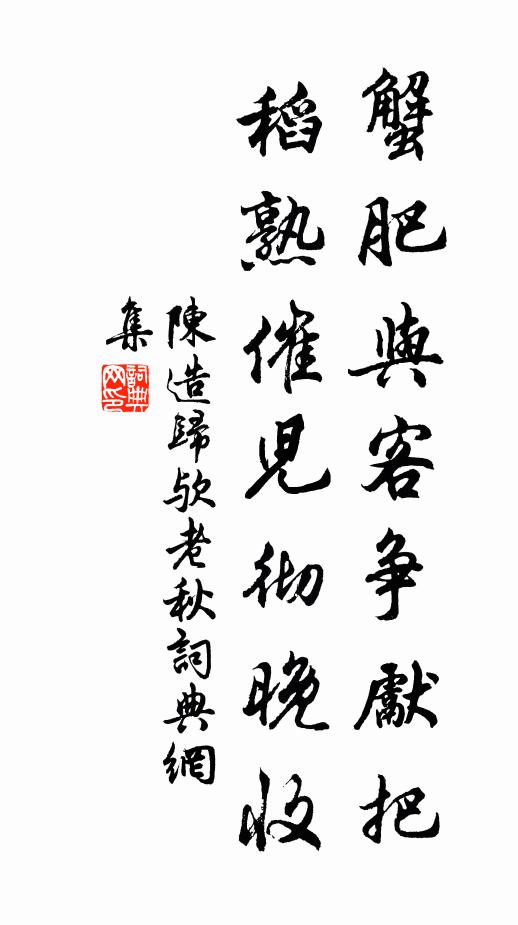 蟹肥與客争獻把
稻熟催児彻晚收
陳造歸欤老秋詞典網
集
詞典网印